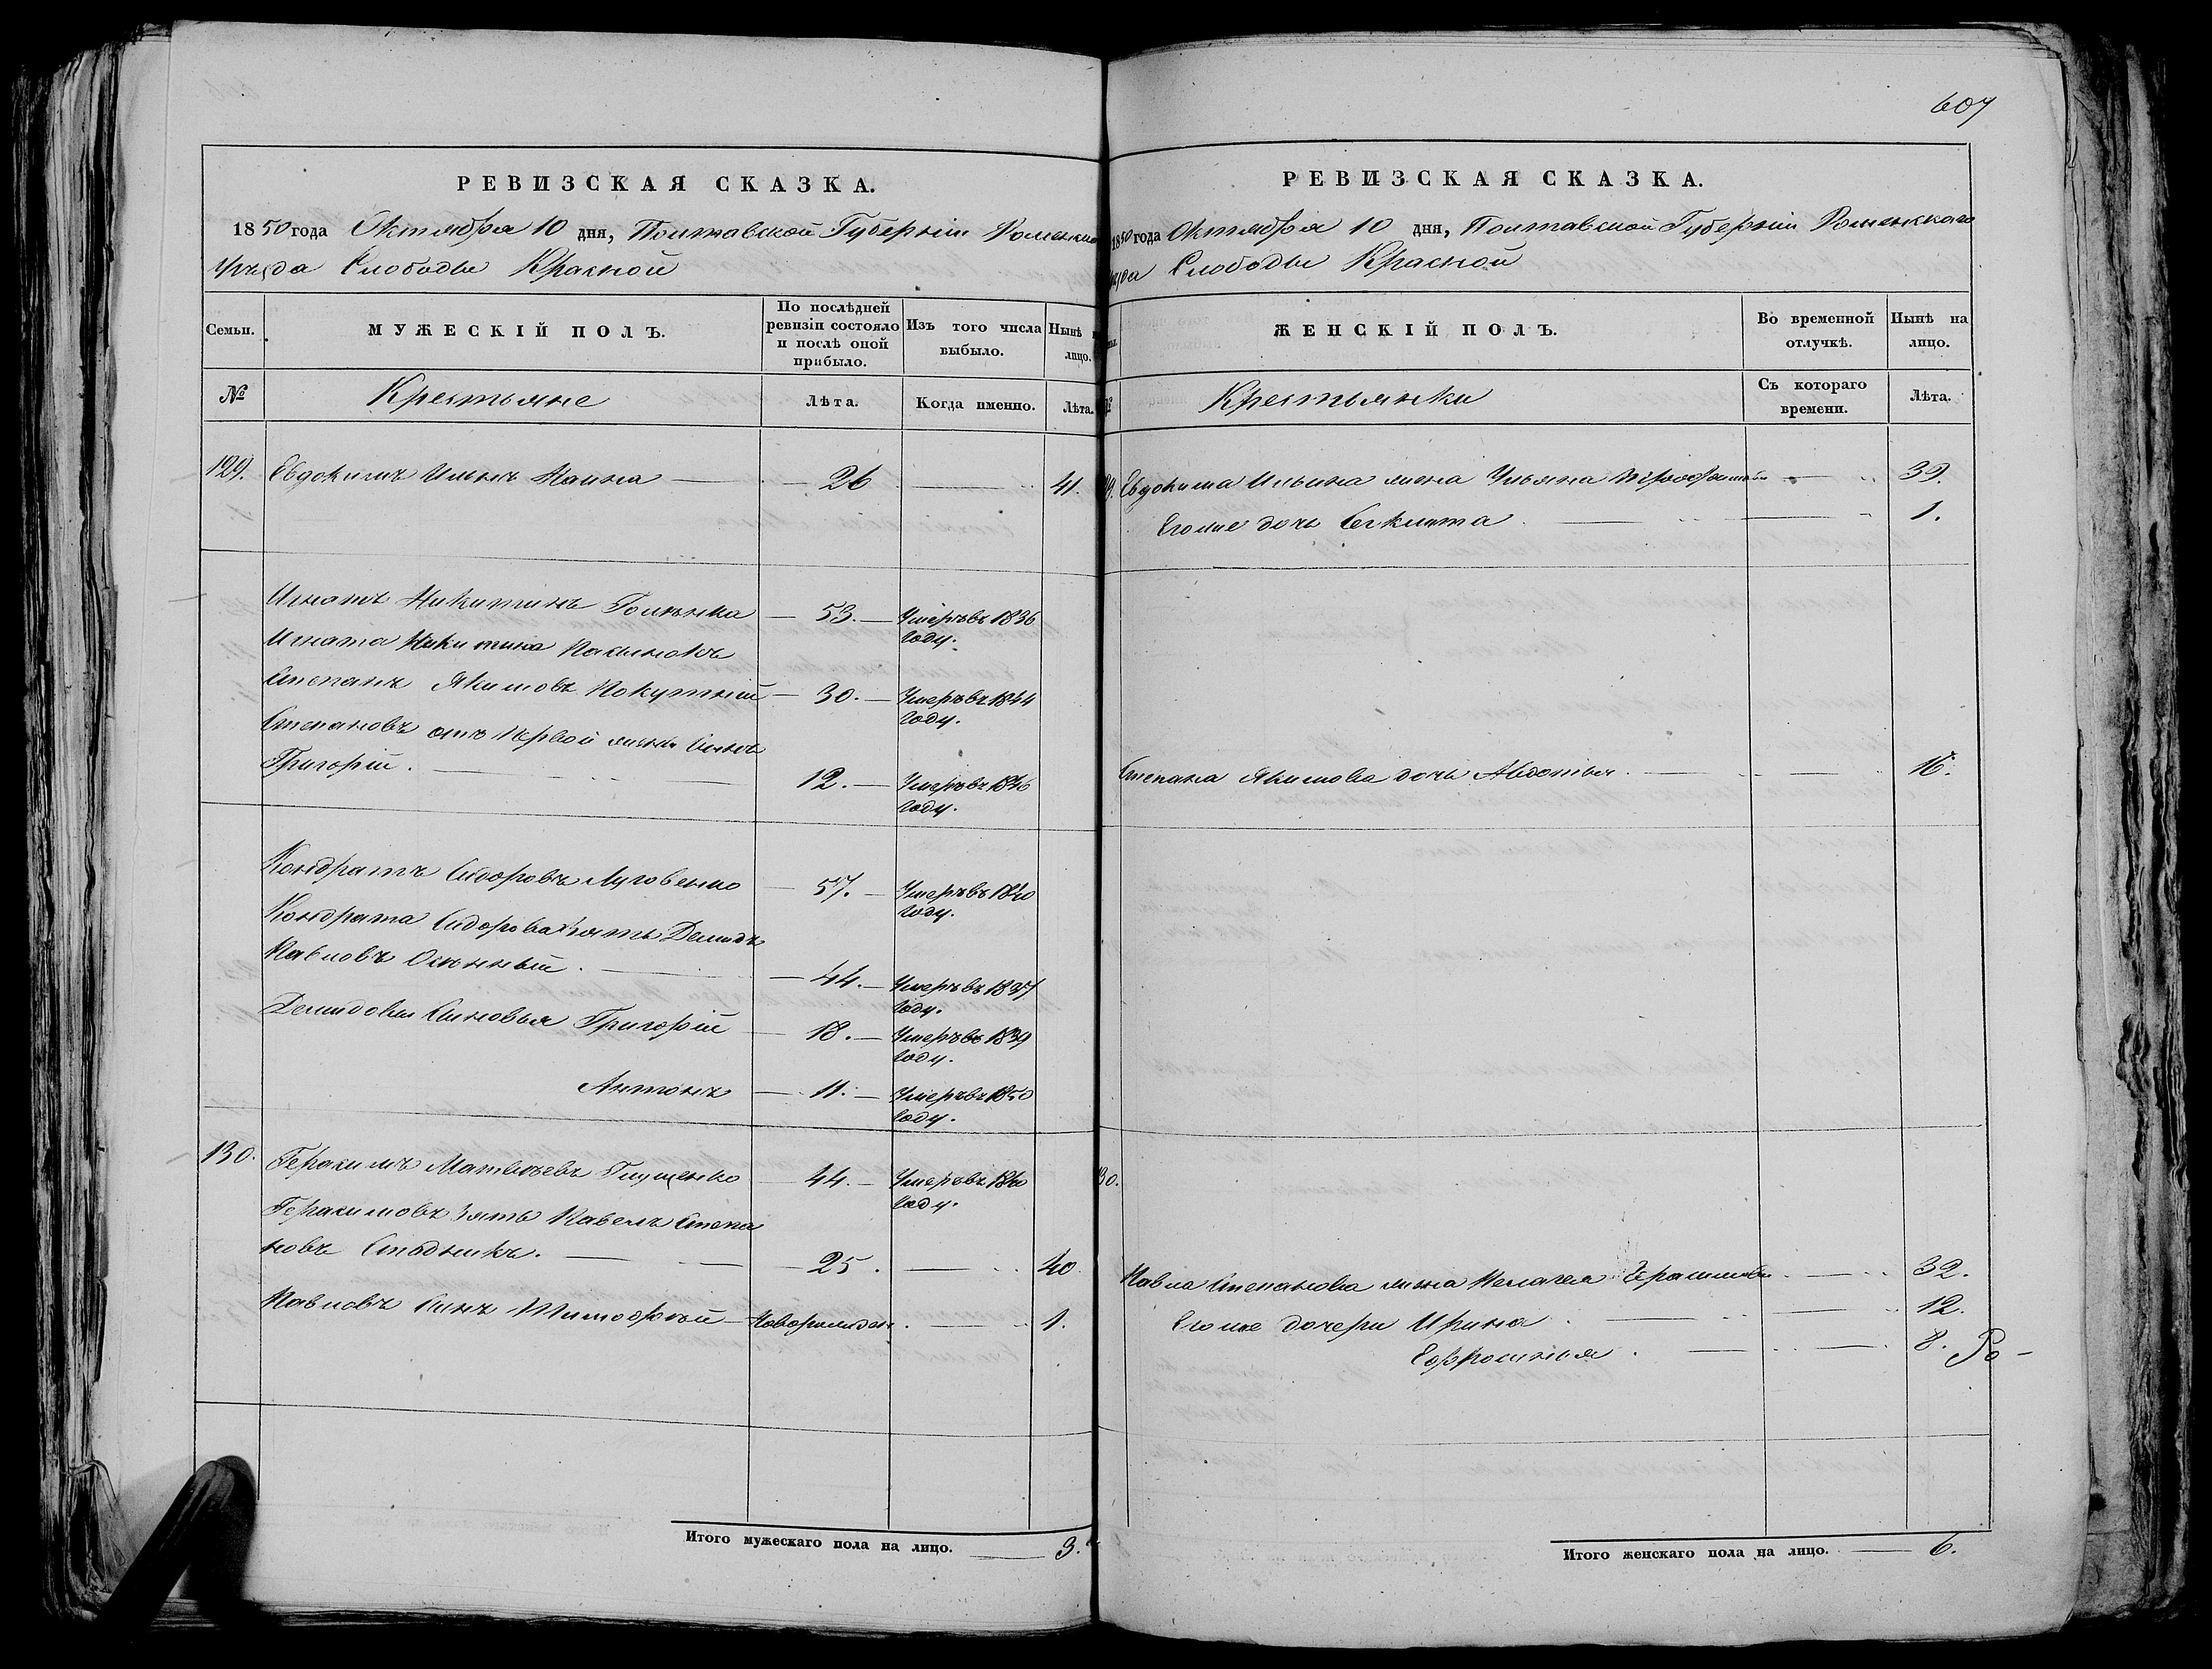 РЕВИЗСКАЯ СКАЗКА.
1850 года Октября 10 дня, Полтавской Губерніи
Уѣзда Слободы Красной
Семьи.
МУЖЕСКІЙ ПОЛЪ.
По послѣдней ревизіи состояло и послѣ оной прибыло.
Изъ того числа выбыло.
Нынѣ
лицо.
№
Крестьяне
Лѣта.
Когда именно.
Лѣта.
129. Евдокимъ Ильинъ — 26 — 41.
Игнатъ Никитинъ — 53. — Умеръ въ 1836
году.
Игната Никитина
Степанъ Якимовъ Покутній — 30. — Умеръ въ 1844
году.
Степановъ отъ первой жены сынъ
Григорій. — 12. — Умеръ въ 1846
году.
Кондратъ Сидоровъ Луговенко — 57. — Умеръ въ 1840
году.
Кондрата Сидорова зять Демидъ
Павловъ — 44. — Умеръ въ 1837
году.
Демидовы сыновья Григорій — 18. — Умеръ въ 1839
году.
Антонъ — 11. — Умеръ въ 1850
году.
130. Герасимъ Матвѣевъ Глущенко — 44. — Умеръ въ 1840
году.
Герасимовъ зять Павелъ Степа
новъ Стадникъ. — 25. — 40
Павловъ сынъ Тимофѣй — Новорожден. — 1.
Итого мужескаго пола на лицо. — 3.
607
РЕВИЗСКАЯ СКАЗКА.
1850 года Октября 10 дня, Полтавской Губерніи Роменскаго
Слободы Красной
ЖЕНСКІЙ ПОЛЪ.
Во временной отлучкѣ.
Нынѣ на лицо.
Крестьянки
Съ котораго времени.
Лѣта.
Евдокима Ильина жена Ульяна — 39.
Его же дочь — 1.
Степана Якимова дочь Авдотья. — 16.
30.
Павла Степанова жена Пелагея Герасимова — 32.
Его же дочери Ирина — 12.
Ефросинья. — 8.
Итого женскаго пола на лицо. — 6.